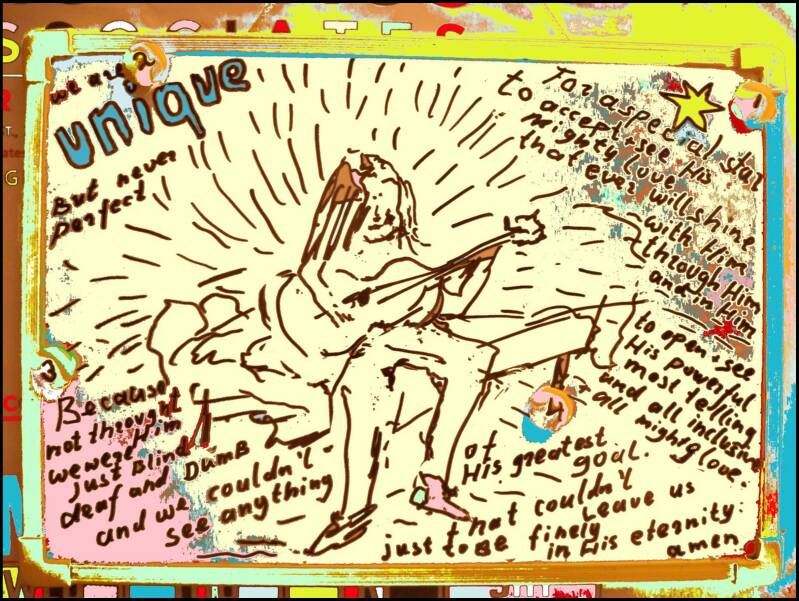 SOCIATES
we are
unique
But never
perfect
For a special star
to accept, see His
mighty love
that ever will shine
with Him
through Him
and in Him
to open, see
His powerful
most telling
and all inclusive
all mighty love.
Because
not through
Him
we were
just Blind
deaf and DumB
and we couldn't
see anything
of
His greatest
goal.
that couldn't
Leave us
just to Be finely
in His eternity.
amen